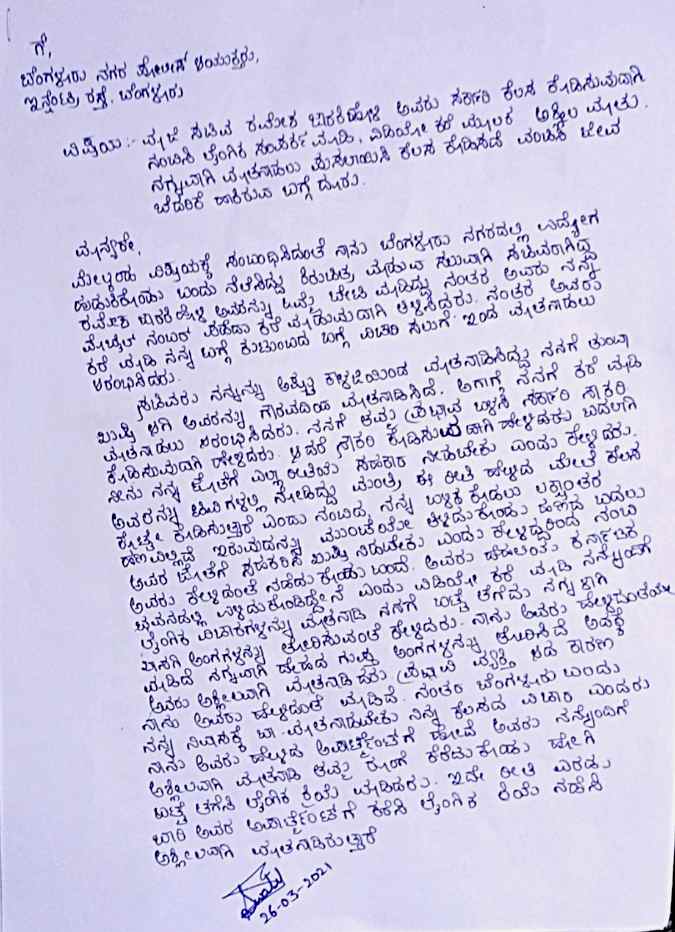 ಗೆ,
ಬೆಂಗಳೂರು ನಗರ ಪೋಲೀಸ್ ಆಯುಕ್ತರು,
ಇನ್ಫೆಂಟ್ರಿ ರಸ್ತೆ, ಬೆಂಗಳೂರು
ವಿಷಯ:- ಮಾಜಿ ಸಚಿವ ರಮೇಶ ಜಾರಕಿಹೊಳಿ ಅವರು ಸರ್ಕಾರಿ ಕೆಲಸ ಕೊಡಿಸುವುದಾಗಿ
ನಂಬಿಸಿ ಲೈಂಗಿಕ ಸಂಪರ್ಕ ಮಾಡಿ, ವಿಡಿಯೋ ಕರೆ ಮೂಲಕ ಅಶ್ಲೀಲ ಮಾತು.
ನಗ್ನವಾಗಿ ಮಾತನಾಡಲು ಪುಸಲಾಯಿಸಿ ಕೆಲಸ ಕೊಡಿಸದೆ ವಂಚಿಸಿ ಜೀವ
ಬೆದರಿಕೆ ಹಾಕಿರುವ ಬಗ್ಗೆ ದೂರು.
ಮಾನ್ಯರೇ,
ಮೇಲ್ಕಂಡ ವಿಷಯಕ್ಕೆ ಸಂಬಂಧಿಸಿದಂತೆ ನಾನು ಬೆಂಗಳೂರು ನಗರದಲ್ಲಿ ಉದ್ಯೋಗ
ಹುಡುಕಿಕೊಂಡು ಬಂದು ನೆಲೆಸಿದ್ದು ಕಿರುಚಿತ್ರ ಮಾಡುವ ಸಲುವಾಗಿ ಸಚಿವರಾಗಿದ್ದ
ರಮೇಶ ಜಾರಕಿಹೊಳಿ ಅವರನ್ನು ಒಮ್ಮೆ ಭೇಟಿ ಮಾಡಿದ್ದು ನಂತರ ಅವರು ನನ್ನ
ಮೊಬೈಲ್ ನಂಬರ್ ಪಡೆದು ಕರೆ ಮಾಡುವುದಾಗಿ ತಿಳಿಸಿದರು. ನಂತರ ಅವರು
ಕರೆ ಮಾಡಿ ನನ್ನ ಬಗ್ಗೆ ಕುಟುಂಬದ ಬಗ್ಗೆ ವಿಚಾರಿ ಸಲುಗೆ ಇಂದ ಮಾತನಾಡಲು
ಆರಂಭಿಸಿದರು.
ಸಚಿವರು ನನ್ನನ್ನು ಅಷ್ಟು ಕಾಳಜಿಯಿಂದ ಮಾತನಾಡಿಸಿದ್ದು ನನಗೆ ತುಂಬಾ
ಖುಷಿ ಆಗಿ ಅವರನ್ನು ಗೌರವದಿಂದ ಮಾತನಾಡಿಸಿದೆ. ಆಗಾಗೆ ನನಗೆ ಕರೆ ಮಾಡಿ
ಮಾತನಾಡಲು ಆರಂಭಿಸಿದರು. ನನಗೆ ತಮ್ಮ ಪ್ರಭಾವ ಬಳಸಿ ಸರ್ಕಾರಿ ನೌಕರಿ
ಕೊಡಿಸುವುದಾಗಿ ಹೇಳಿದರು. ಆದರೆ ನೌಕರಿ ಕೊಡಿಸುವುದಾಗಿ ಹೇಳಿದರು ಬದಲಾಗಿ
ನೀನು ನನ್ನ ಜೊತೆಗೆ ಎಲ್ಲಾ ರೀತಿಯ ಸಹಕಾರ ನೀಡಬೇಕು ಎಂದು ಕೇಳಿದರು.
ಅವರನ್ನು ಟಿವಿಗಳಲ್ಲಿ ನೋಡಿದ್ದು ಮಂತ್ರಿ ಈ ರೀತಿ ಹೇಳಿದ ಮೇಲೆ ಕೆಲಸ
ಕೊಟ್ಟೇ ಕೊಡಿಸುತ್ತಾರೆ ಎಂದು ನಂಬಿದೆ, ನನ್ನ ಬಳಿ ಕೊಡಲು ಲಕ್ಷಾಂತರ
ಹಣವಿಲ್ಲದೆ ಇರುವುದನ್ನು ಮುಂಚೆಯೇ ತಿಳಿದುಕೊಂಡು ಹಣದ ಬದಲು
ಅವರ ಜೊತೆಗೆ ಸಹಕರಿಸಿ ಖುಷಿ ನೀಡಬೇಕು ಎಂದು ಕೇಳಿದ್ದರಿಂದ ನಂಬಿ
ಅವರು ಕೇಳಿದಂತೆ ನಡೆದುಕೊಂಡು ಬಂದೆ. ಅವರು ದೆಹಲಿಯ ಕರ್ನಾಟಕ
ಭವನದಲ್ಲಿ ಉಳಿದುಕೊಂಡಿದ್ದೇನೆ ಎಂದು ವಿಡಿಯೋ ಕರೆ ಮಾಡಿ ನನ್ನೊಂದಿಗೆ
ಲೈಂಗಿಕ ವಿಚಾರಗಳನ್ನು ಮಾತನಾಡಿ ನನಗೆ ಬಟ್ಟೆ ತೆಗೆದು ನಗ್ನವಾಗಿ
ಖಾಸಗಿ ಅಂಗಗಳನ್ನು ತೋರಿಸುವಂತೆ ಕೇಳಿದರು. ನಾನು ಅವರು ಹೇಳಿದಂತೆಯೇ
ಮಾಡಿದೆ ನಗ್ನವಾಗಿ ದೇಹದ ಗುಪ್ತ ಅಂಗಗಳನ್ನು ತೋರಿಸಿದೆ ಅದಕ್ಕೆ
ಅವರು ಅಶ್ಲೀಲವಾಗಿ ಮಾತನಾಡಿದರು ಪ್ರಭಾವಿ ವ್ಯಕ್ತಿ ಆದ ಕಾರಣ
ನಾನು ಅವರು ಹೇಳಿದಂತೆ ಮಾಡಿದೆ. ನಂತರ ಬೆಂಗಳೂರು ಬಂದು
ನನ್ನ ನಿವಾಸಕ್ಕೆ ಬಾ ಮಾತನಾಡಬೇಕು ನಿನ್ನ ಕೆಲಸದ ವಿಚಾರ ಎಂದರು
ನಾನು ಅವರು ಹೇಳಿದ ಅಪಾರ್ಟ್ಮೆಂಟ್‌ಗೆ ಹೋದೆ ಅವರು ನನ್ನೊಂದಿಗೆ
ಅಶ್ಲೀಲವಾಗಿ ಮಾತನಾಡಿ ತಮ್ಮ ರೂಂಗೆ ಕರೆದುಕೊಂಡು ಹೋಗಿ
ಬಟ್ಟೆ ತೆಗೆಸಿ ಲೈಂಗಿಕ ಕ್ರಿಯೆ ಮಾಡಿದರು. ಇದೇ ರೀತಿ ಎರಡು
ಬಾರಿ ಅವರ ಅಪಾರ್ಟ್ಮೆಂಟ್‌ಗೆ ಕರೆಸಿ ಲೈಂಗಿಕ ಕ್ರಿಯೆ ನಡೆಸಿ
ಅಶ್ಲೀಲವಾಗಿ ಮಾತನಾಡಿರುತ್ತಾರೆ
26-03-2021